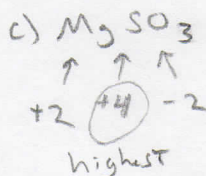 c) MgSO₃
+2 +4 -2
highest